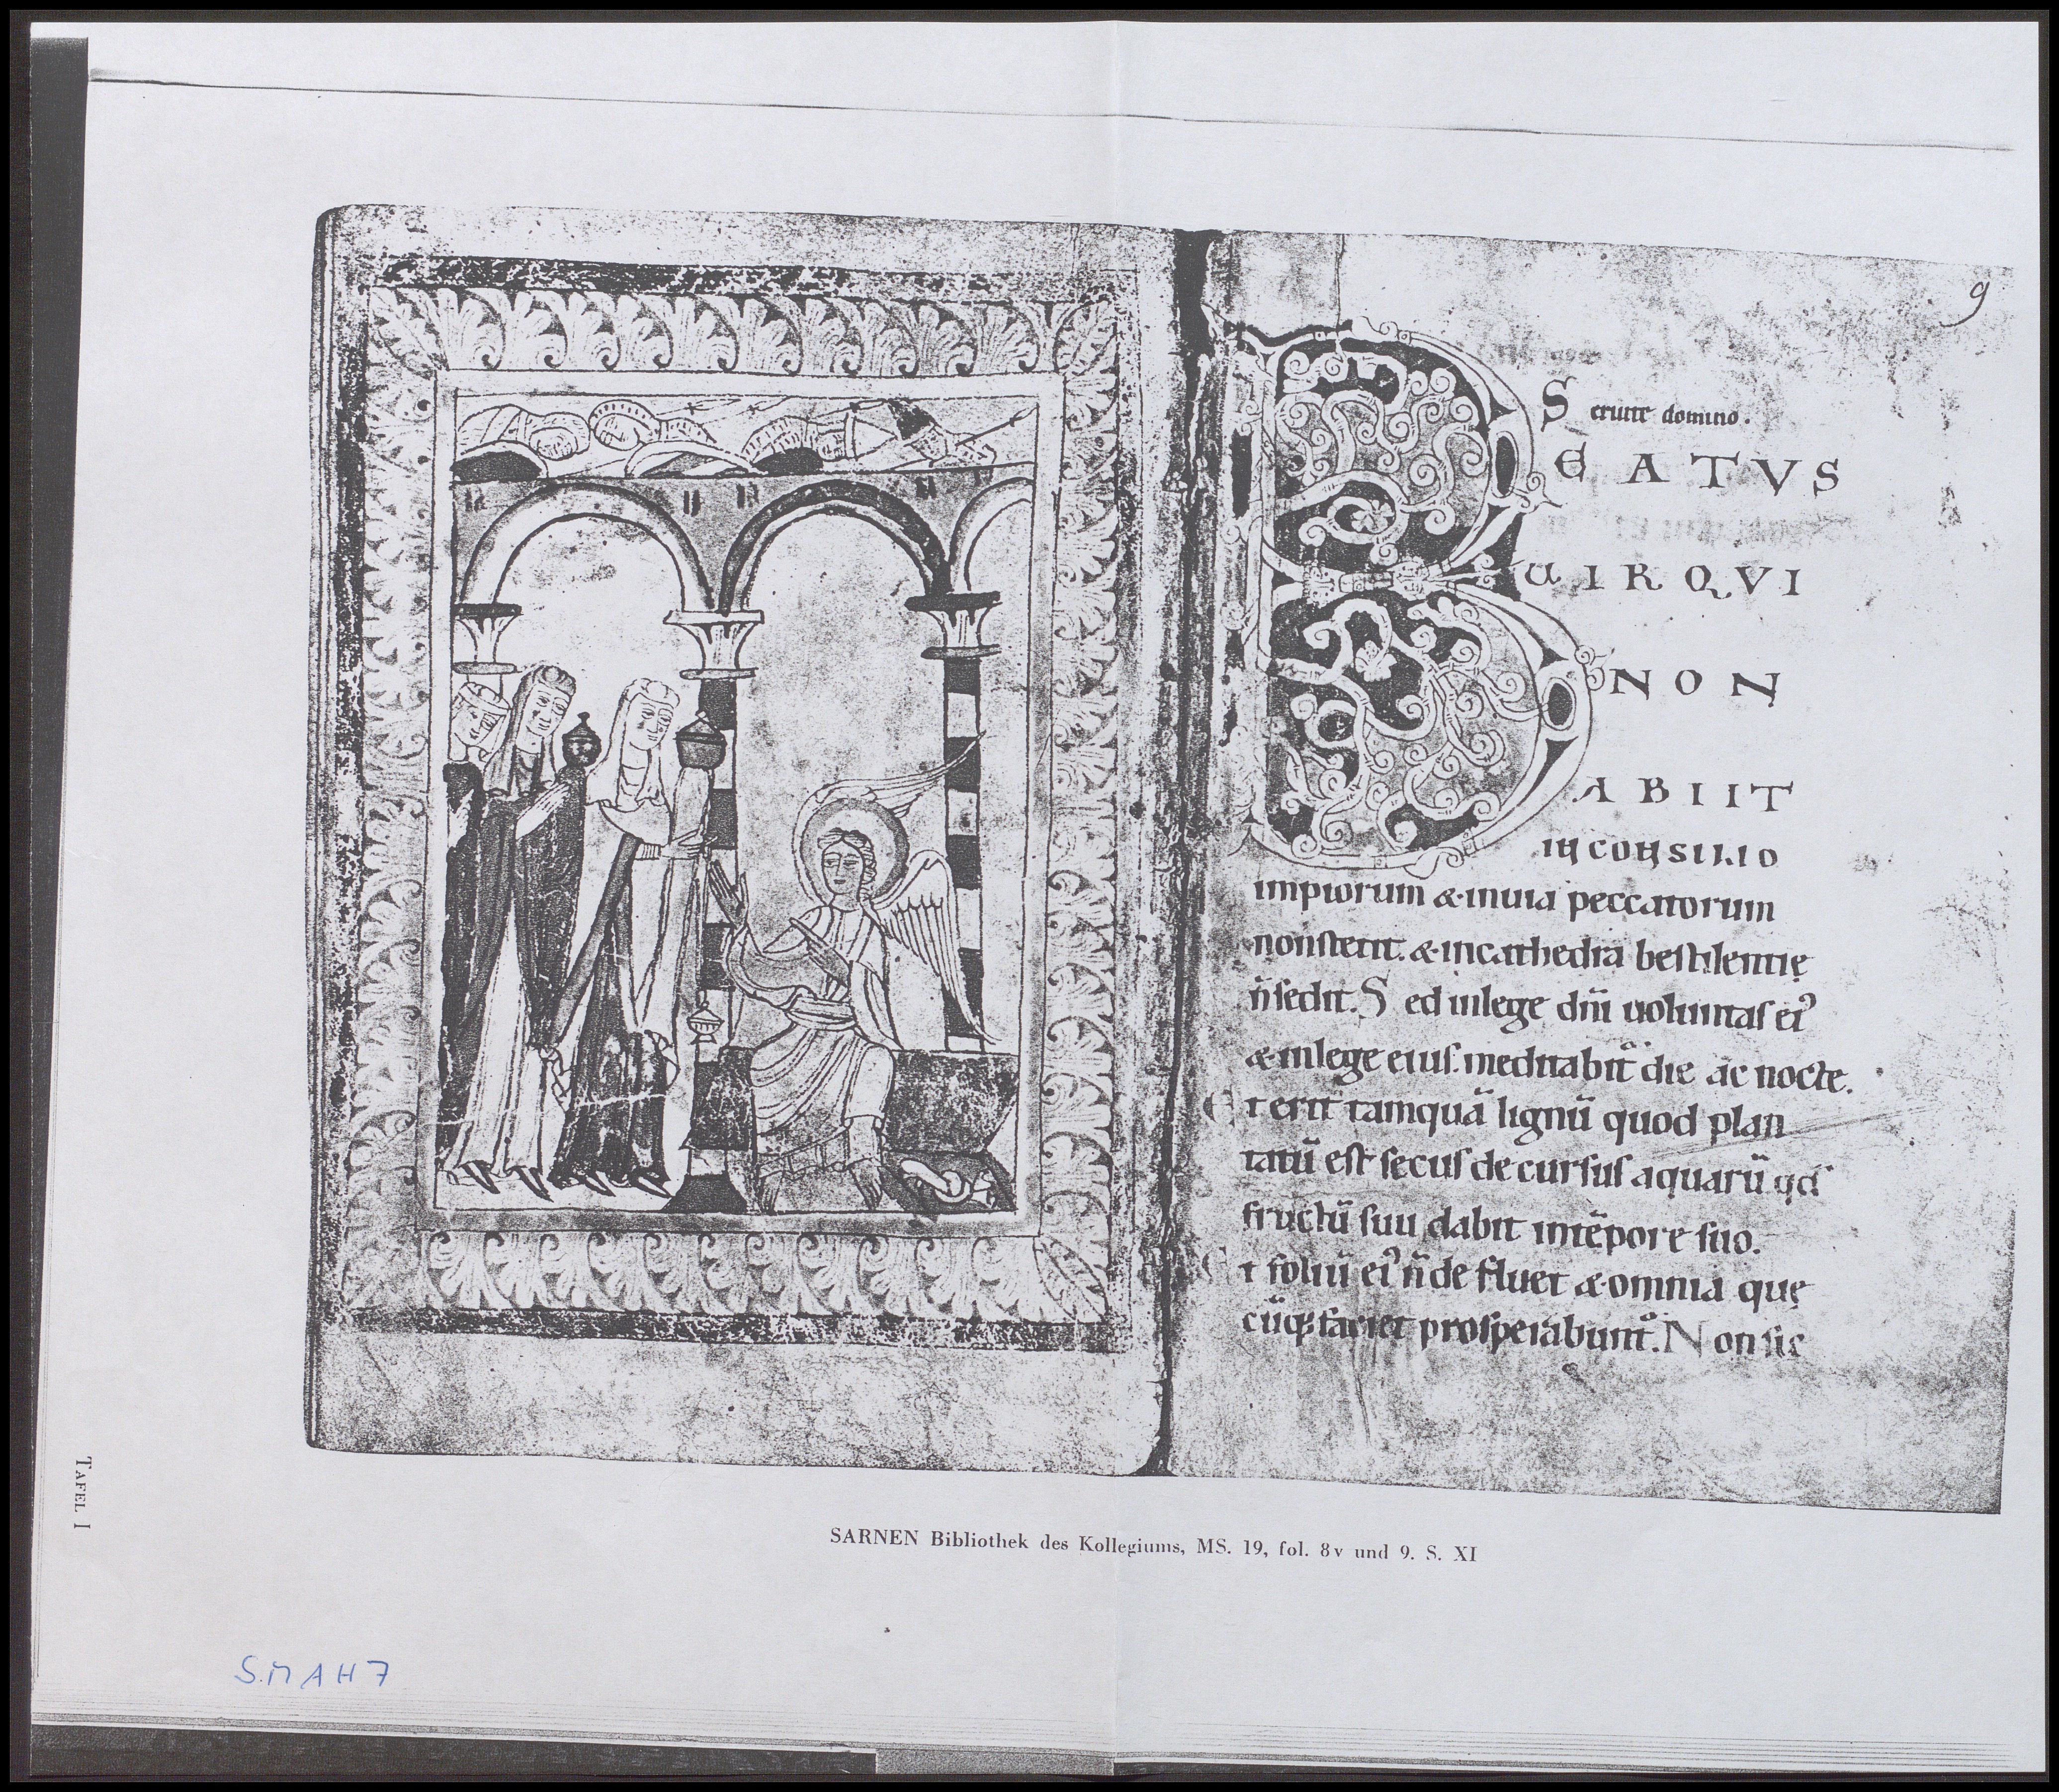 9
Seruite domino.
BEATVS
UIR QVI
NON
ABIIT
IN CONSILIO
impiorum & inuia peccatorum
non stetit. & incathedra pestilentię
n̄ sedit. Sed inlege dn̄i uoluntas ei᾿
& inlege eius. meditabit᷑ die ac nocte.
Et erit tamquā lignū quod plan
tatū est secus decursus aquarū qd̄
fructū suū dabit intēpore suo.
Et foliū ei᾿ n̄ defluet & omnia quę
cūq; faciet prosperabunt᷑. Non sic
TAFEL I
SARNEN Bibliothek des Kollegiums, MS. 19, fol. 8v und 9. S. XI
S.MAH7